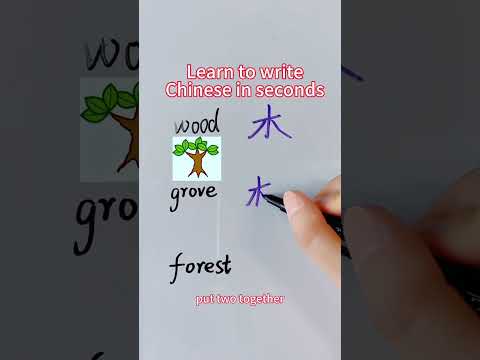 Learn to write
Chinese in seconds
wood 木
grove 木
forest
put two together